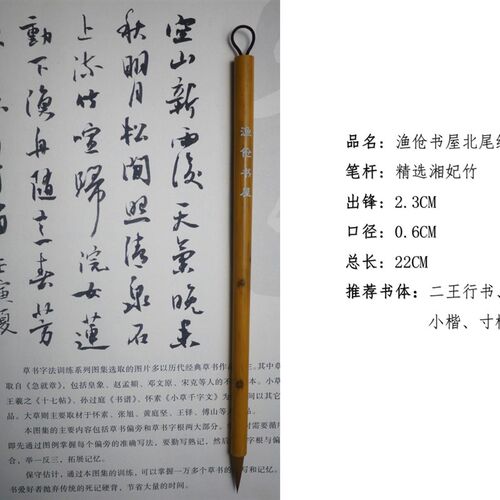 空山新雨後天氣晚來
秋明月松間照清泉石
上流竹喧歸浣女蓮
動下漁舟隨意春芳
壬寅夏
渔伧书屋
草书字法训练系列图集选取的图片多以历代经典草书作 主。其中章
取自《急就章》，包括皇象、赵孟頫、邓文原、宋克等人的不 本。小草
王羲之《十七帖》、孙过庭《书谱》、怀素《小草千字文》为 间以其它
品。大草则主要取材于怀素、张旭、黄庭坚、王铎、傅山等人
本图集的主要内容包括草书偏旁和草书字根两大部分。 时需要循
即先通过图例掌握每个偏旁的准确写法，要勤写熟记，然后 字根与偏
合，举一反三，拓展记忆。
保守估计，通过本图集的训练，可以掌握一万多个草书的 写和记忆。
书爱好者抛弃传统的死记硬背，节省大量的时间。
品名：渔伧书屋北尾
笔杆：精选湘妃竹
出锋：2.3CM
口径：0.6CM
总长：22CM
推荐书体：二王行书、
小楷、寸